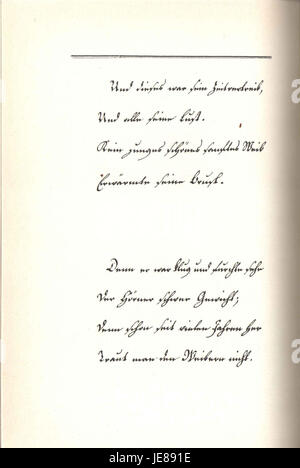 Und dieses war sein Zeitvertreib,
Und alle seine Lust.
Kein junges schönes sanftes Weib
Erwärmte seine Brust.
Denn er war klug und furchte sehr
Der Hörner schwer Gewicht;
Denn schon seit vielen Jahren her
Traut man den Weibern nicht.
alamy
JE891E